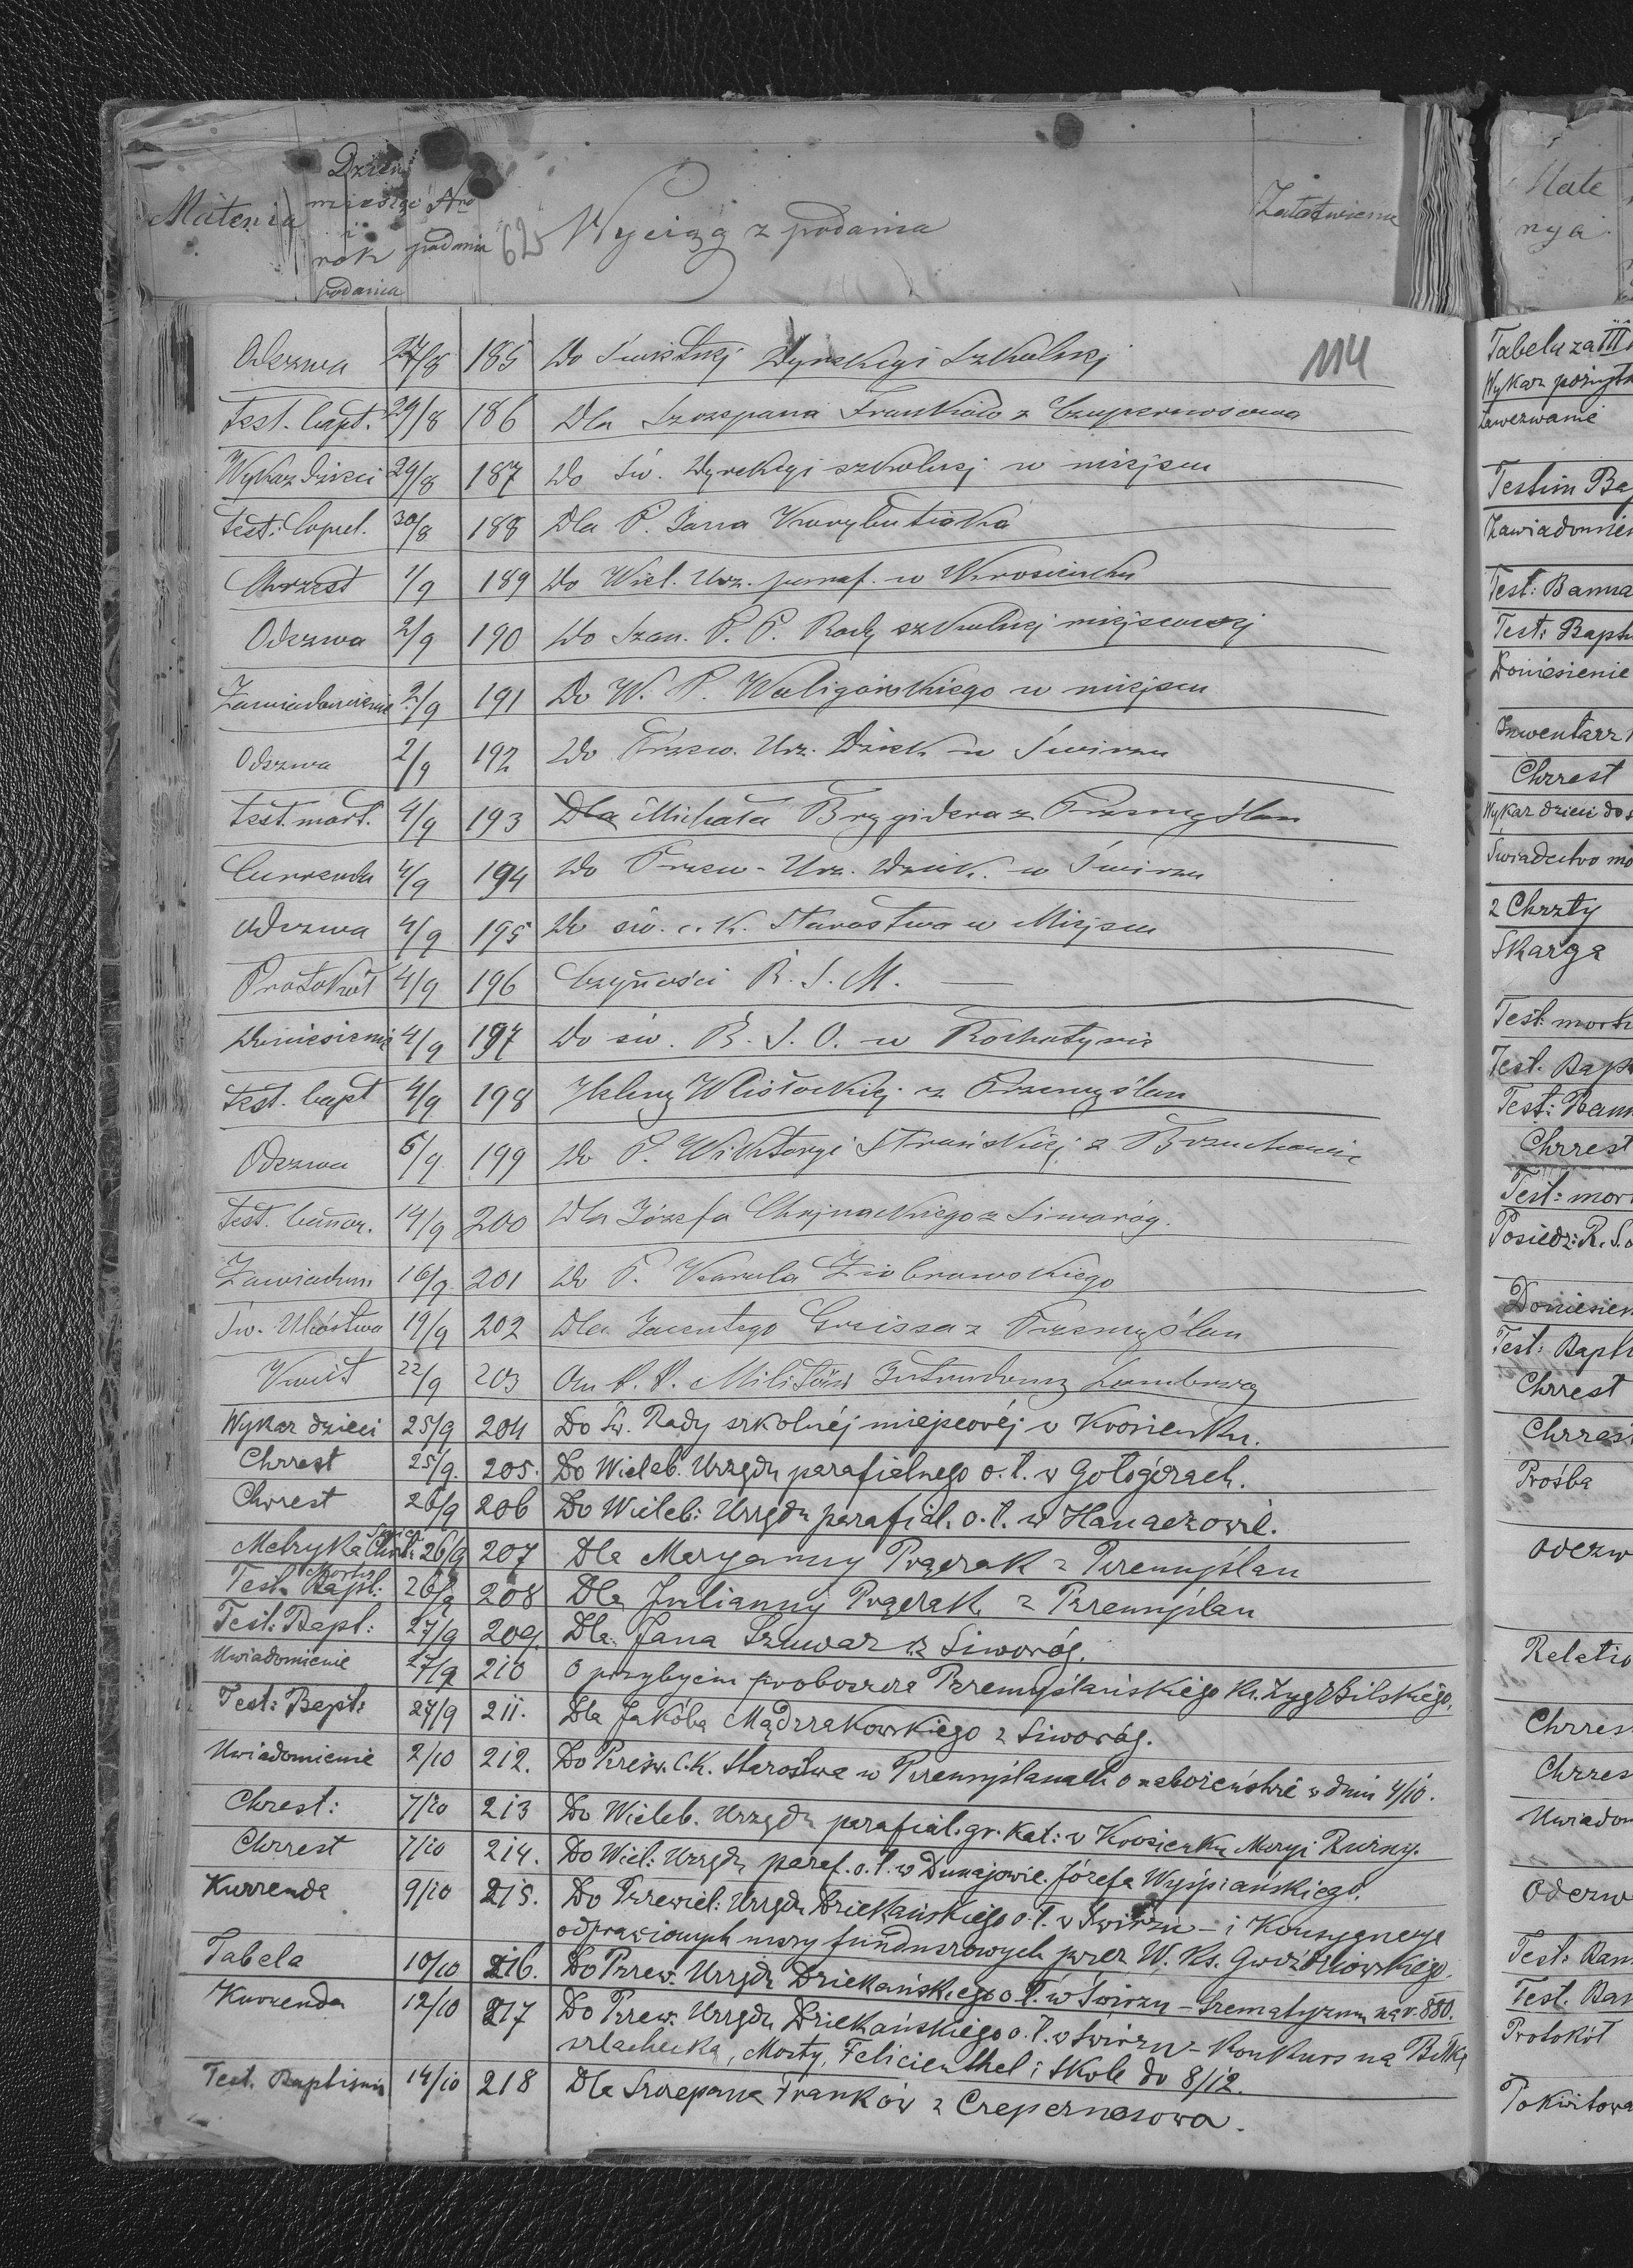 Materia
Dzień
miesiąc
i
rok
podania
Nro
podania
62
Wyciąg z podania
Załatwienie
114
Odezwa 27/8 185 Do Dyrekcyi Szkolnej
Test. bapt. 29/8 186 Dla Szczepana Franków z Czupernosowa
Wykaz dzieci 29/8 187 Do Św. Dyrekcyi szkolnej w miejscu
Test: Copul. 30/8 188 Dla P. Jana Korybutiaka
Chrzest 1/9 189 Do Wiel. Urz. paraf. w Krosienku
Odezwa 2/9 190 Do Szan. P. P. Rady szkolnej miejscowej
Zawiadomienie 2/9 191 Do W. P. Waligórskiego w miejscu
Odezwa 2/9 192 Do Przew. Urz. Dziek. w Świrzu
Test. mort. 4/9 193 Dla Michała Brygidera z Przemyślan
Currenda 4/9 194 Do Przew. Urz. Dziek. w Świrzu
Odezwa 4/9 195 Do św. c. k. Starostwa w Miejscu
Protokół 4/9 196 Czynności R. S. M. —
Doniesienie 4/9 197 Do św. R. S. O. w Rohatynie
Test. bapt 4/9 198 Heleny Wisłockiej z Przemyślan
Odezwa 6/9 199 Do P. Wiktoryi Strusińskiej z Brzuchowic
Test. bannor. 14/9 200 Dla Józefa Chojnackiego z Siworóg.
Zawiadom 16/9 201 Do P. Karola Ziobrowskiego
Św. Ubóstwa 19/9 202 Dla Jacentego Greissa z Przemyślan
Kwit 22/9 203 An k. k. Militär Intendanz Lemberg
Wykaz dzieci 25/9 204 Do Św. Rady szkolnéj miejscovéj v Krosienku.
Chrzest 25/9. 205. Do Wieleb. Urzędu parafialnego o. ł. w Gołogórach.
Chrzest 26/9 206 Do Wieleb: Urzędu parafial. o. ł. w Hanaczowie.
Metryka Chrztu 26/9 207 Dla Maryanny Prącrak z Przemyślan
Mortis
Test: Bapt: 26/9 208 Dla Julianny Prącrak z Przemyślan
Test: Bapt: 27/9 209. Dla Jana Szuwar z Siworóg.
Uwiadomienie 27/9 210 O przybyciu proboszcza Przemyślańskiego ks. Zyg. Bilskiego.
Test: Bapt: 27/9 211. Dla Jakóba Mądrzakowskiego z Siworóg.
Uwiadomienie 2/10 212. Do Prześw. C. K. Starostwa w Przemyślanach o nabożeństwie w dniu 4/10.
Chrzest: 7/10 213 Do Wieleb. Urzędu parafial. gr. kat: v Krosienku Maryi Ruźny.
Chrzest 7/10 214. Do Wiel: Urzędu paraf. o. ł. w Dunajowie. Józefa Wyspiańskiego.
Kurrenda 9/10 215. Do Przewiel: Urzędu Dziekańskiego o. ł. v Świrzu – i Konsygnacye
odprawionych mszy funduszowych przez W. Ks. Gwoździowskiego.
Tabela 10/10 216. Do Przew. Urzędu Dziekańskiego o. ł. w Świrzu – Szematyzmu na r. 880.
Kurrenda 12/10 217 Do Przew. Urzędu Dziekańskiego o. ł. w Świrzu – Konkurs na Biłkę
szlachecką, Mosty, Felicienthal i Skole do 8/12.
Test. Baptismi 14/10 218 Dla Szczepana Franków z Czepernosowa.
Mate
nya
Tabela za III
Wykaz pożyt
Zawezwanie
Testim Bap
Zawiadomien
Test: Banna
Test: Bapt
Doniesienie
Inwentarz
Chrzest
Wykaz dzieci do s
Świadectwo mo
2 Chrzty
Skarga
Test: mort
Test. Bap
Test: Bann
Chrzest
Test: mor
Posiedz: R. S. o
Doniesien
Test: Bapt
Chrzest
Chrzest
Prośba
Odezw
Relatio
Chrzes
Chrzes
Uwiadom
Odezw
Test: Ban
Test. Ban
Protokół
Pokwitowa